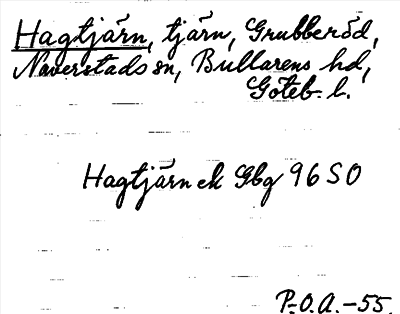 Hagtjärn, tjärn, Grubberöd,
Naverstads sn, Bullarens hd,
Göteb. l.
Hagtjärn ek Gbg 96 SO
P.O.A. -55.